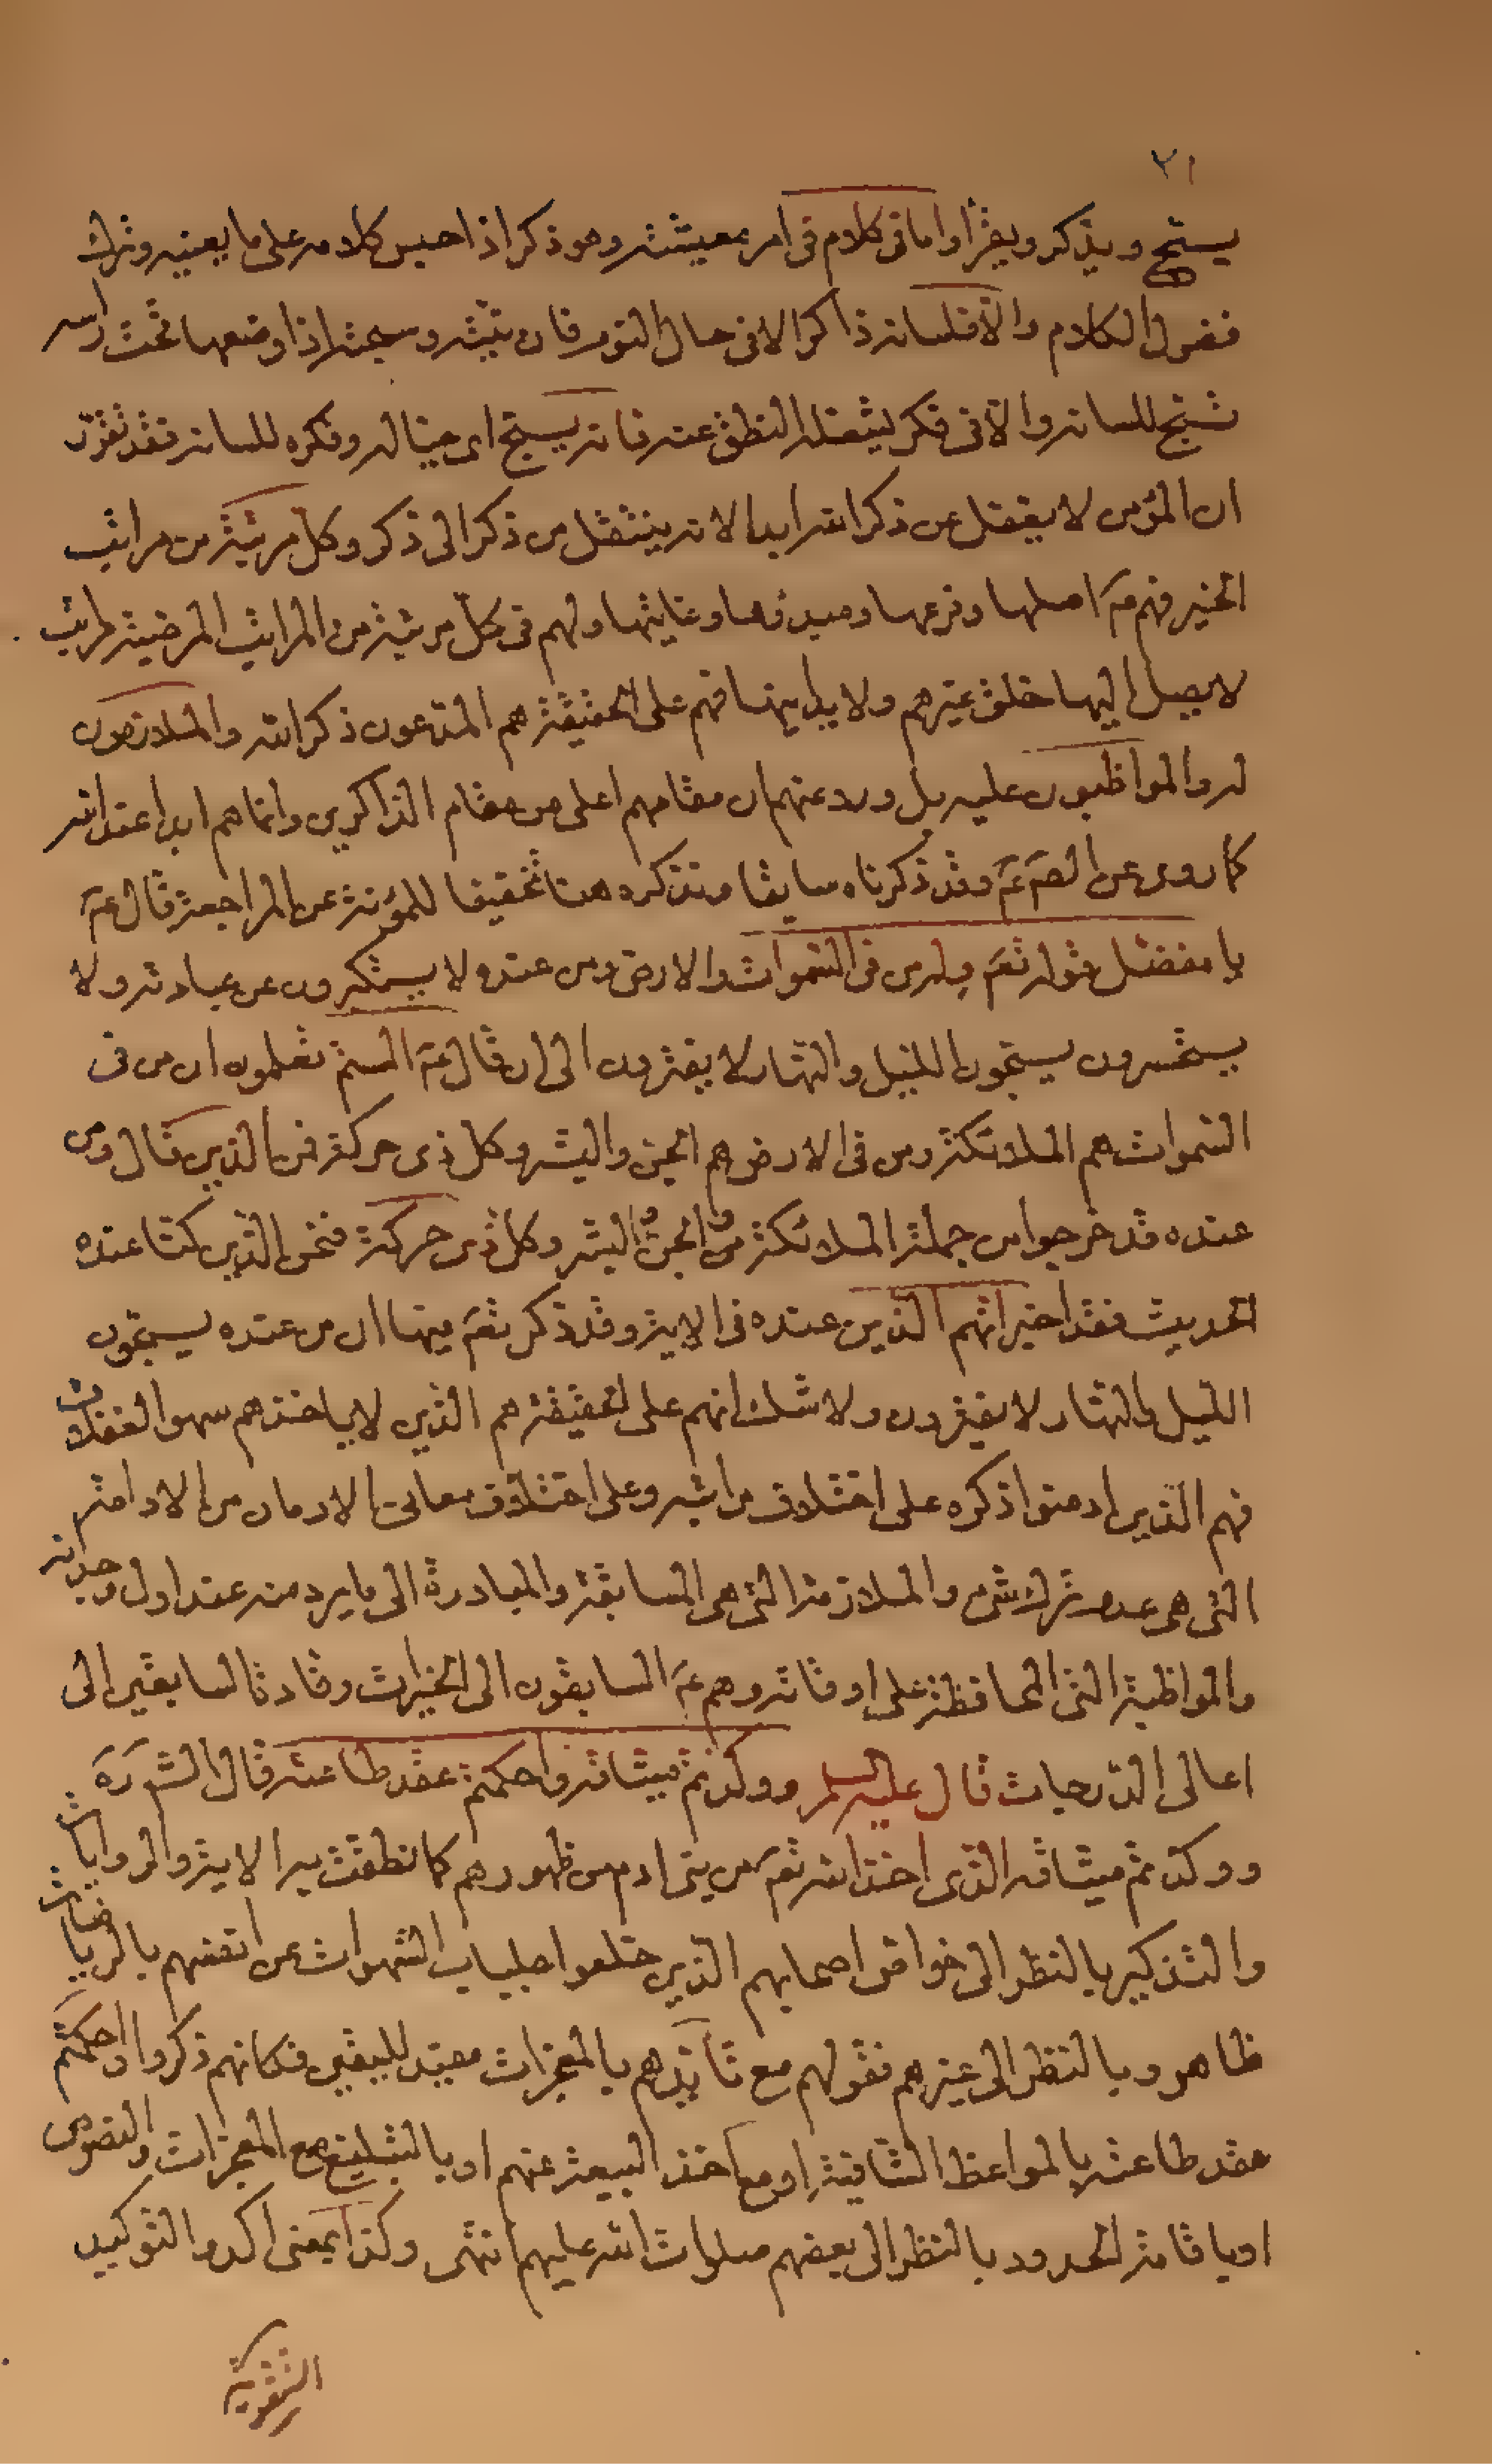 ٢١
يسبح ويذكر ويقرأ واما فى كلام فى امر معيشته وهو ذكر اذا حبس كلامه على ما يعينه وترك
فضول الكلام والا فلسانه ذاكر الا فى حال النوم فان بيته وسبحته اذا وضعها تحت راسه
تسبح للسانه والا فى فكر يشغله النطق عنه فانه يسبح اى خياله وفكره للسانه فقد تقرر
ان المؤمن لا يغفل عن ذكر الله ابدا لانه ينتقل من ذكر الى ذكر وكل مرتبة من مراتب
الخير فهم عۤ اصلها وفرعها ومبدؤها وغايتها ولهم فى كل مرتبة من المراتب المرضية مراتب
لا يصل اليها خلق غيرهم ولا يدانيها فهم على الحقيقة هم المدعون ذكر الله والملازمون
له والمواظبون عليه بل ورد عنهم ان مقامهم اعلى من مقام الذاكرين وانما هم ابدا عند الله
كما روى عن الصۤ عۤ وقد ذكرناه سابقا ونذكره هنا تخفيفا للمؤنة عن المراجعة قال عۤ
يا مفضل قوله تعۤ وله من فى السموات والارض ومن عنده لا يستكبرون عن عبادته ولا
يستحسرون يسبحون الليل والنهار لا يفترون الى ان قال عۤ الستم تعلمون ان من فى
السموات هم الملائكة ومن فى الارض هم الجن والبشر وكل ذى حركة فمن الذين قال ومن
عنده قد خرجوا من جملة الملائكة والجن والبشر وكل ذى حركة فنحن الذين كنا عنده
الحديث فقد اخبر انهم الذين عنده فى الاية وقد ذكر تعۤ فيها ان من عنده يسبحون
الليل والنهار لا يفترون ولا شك انهم على الحقيقة هم الذين لا ياخذهم سهو الغفلات
فهم الذين ادمنوا ذكره على اختلاف مراتبه وعلى اختلاف معانى الادمان من الادامة
التى هى عدم ترك شئ والملازمة التى هى المسابقة والمبادرة الى ما يرد منه عند اول وجدانه
والمواظبة التى المحافظة على اوقاته وهم عۤ السابقون الى الخيرات وقادة السابقين الى
اعالى الدرجات قال عليه السلم ووكدتم ميثاقه واحكمتم عقد طاعته قال الشۤ رۤهۤ
ووكدتم ميثاقه الذى اخذ الله تعۤ من بنى ادم من ظهورهم كما نطقت به الاية والروايات
والتذكير بالنظر الى خواص اصحابهم الذين خلعوا جلباب الشهوات عن انفسهم بالرياضات
ظاهر وبالنظر الى غيرهم فقولهم مع تأيدهم بالمعجزات مفيد لليقين فكانهم ذكروا واحكمتم
عقد طاعته بالمواعظ الشافية او مع اخذ البيعة عنهم او بالتبليغ مع المعجزات والنصوص
او باقامة الحدود بالنظر الى بعضهم صلوات الله عليهم انتهى وكد بمعنى اكد والتوكيد
التقوية